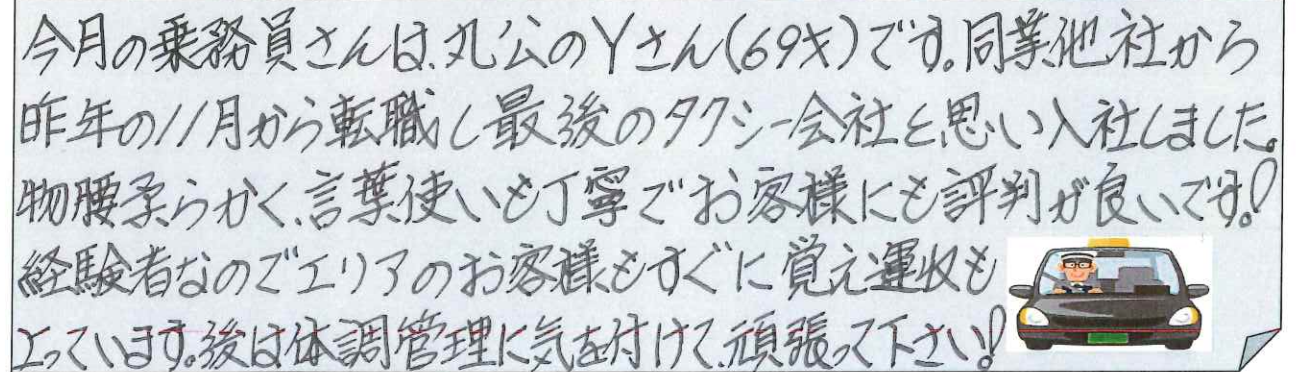 今月の乗務員さんは、丸公のYさん(69才)です。同業他社から
昨年の11月から転職し最後のタクシー会社と思い入社しました。
物腰柔らかく、言葉使いも丁寧でお客様にも評判が良いです!
経験者なのでエリアのお客様もすぐに覚え運収も
上っています。後は体調管理に気を付けて、頑張って下さい!